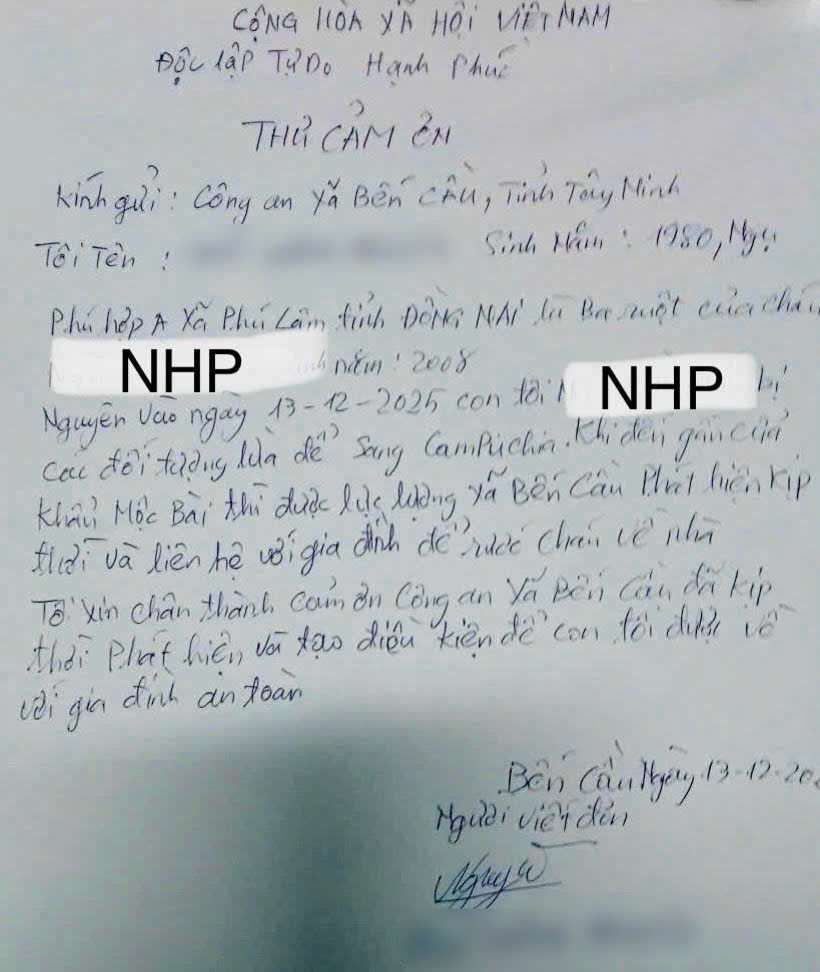 CỘNG HÒA XÃ HỘI VIỆT NAM
Độc lập Tự Do Hạnh Phúc
THƯ CẢM ƠN
Kính gửi : Công an xã BẾN CẦU, Tỉnh Tây Ninh
Tôi Tên : Sinh Năm : 1980, Ngụ
Phú hợp A Xã Phú Lâm tỉnh ĐỒNG NAI là Ba ruột của cháu
NHP năm : 2008
Nguyên vào ngày 13-12-2025 con tôi NHP bị
các đối tượng lừa để sang Campuchia. Khi đến gần cửa
khẩu Mộc Bài thì được lực lượng xã Bến Cầu Phát hiện kịp
thời và liên hệ với gia đình để rước cháu về nhà
Tôi xin chân thành cảm ơn Công an xã Bến Cầu đã kịp
thời Phát hiện và tạo điều kiện để con tôi được về
với gia đình an toàn
Bến Cầu Ngày 13-12-202
Người viết đơn